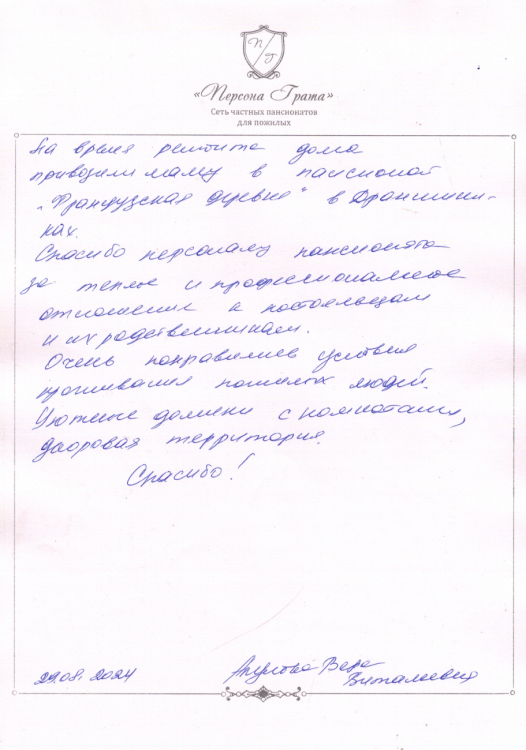 П Г
«Персона Грата»
Сеть частных пансионатов
для пожилых
На время ремонта дома
привозили маму в пансионат
"Французская деревня" в Дранишни-
ках.
Спасибо персоналу пансионата
за теплое и профессиональное
отношение к постояльцам
и их родственникам.
Очень понравились условия
проживания пожилых людей.
Уютные домики с комнатами,
здоровая территория.
Спасибо!
29.08.2024
Вера
Витальевна